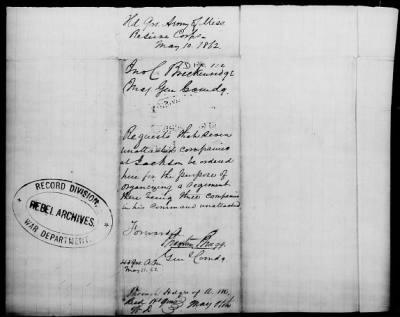 Hd Qrs Army of Miss
Reserve Corps
May 10. 1862
Jno C. Breckenridge
Maj Gen Comdg.
Requests that seven
unattached companies
at Jackson be ordered
here for the purpose of
organizing a regiment
there being three companies
in his command unattached
Forwarded
Braxton Bragg
Gen'l Comdg
May 11. 62
Hdqrs
May
RECORD DIVISION,
REBEL ARCHIVES,
WAR DEPARTMENT.